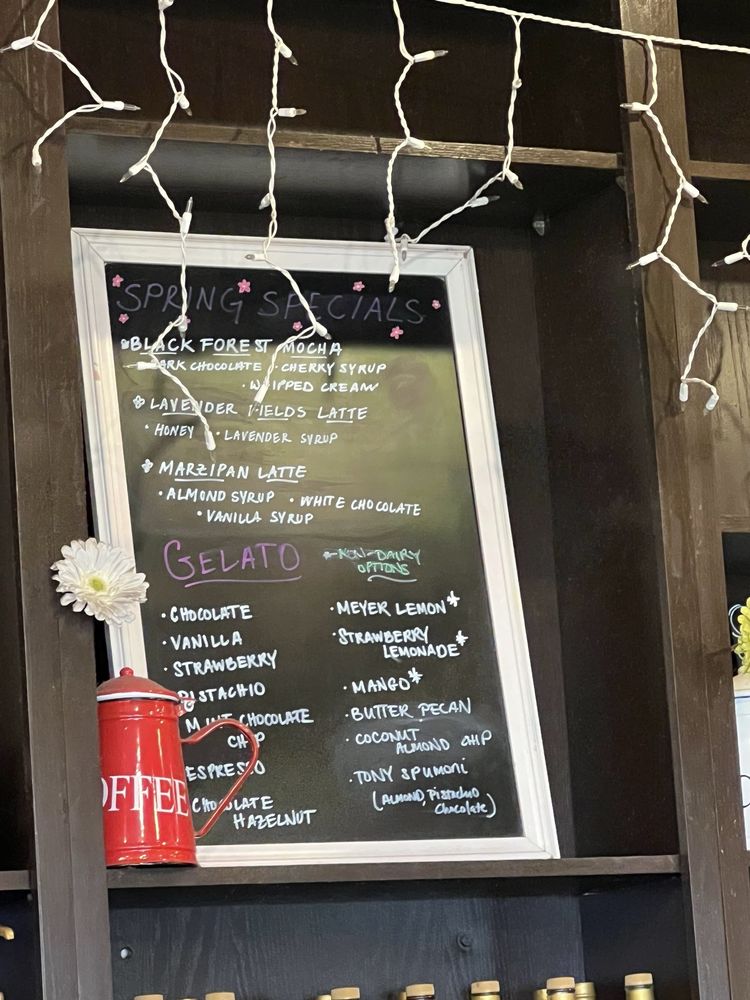 SPRING SPECIALS
BLACK FOREST MOCHA
DARK CHOCOLATE · CHERRY SYRUP
· WHIPPED CREAM
LAVENDER FIELDS LATTE
· HONEY · LAVENDER SYRUP
MARZIPAN LATTE
· ALMOND SYRUP · WHITE CHOCOLATE
· VANILLA SYRUP
GELATO
*NON-DAIRY
OPTIONS
· CHOCOLATE
· VANILLA
· STRAWBERRY
PISTACHIO
MINT CHOCOLATE
CHIP
ESPRESSO
CHOCOLATE
HAZELNUT
· MEYER LEMON*
· STRAWBERRY
LEMONADE*
· MANGO*
· BUTTER PECAN
· COCONUT
ALMOND CHIP
· TONY SPUMONI
(ALMOND, Pistachio
Chocolate)
OFFEE